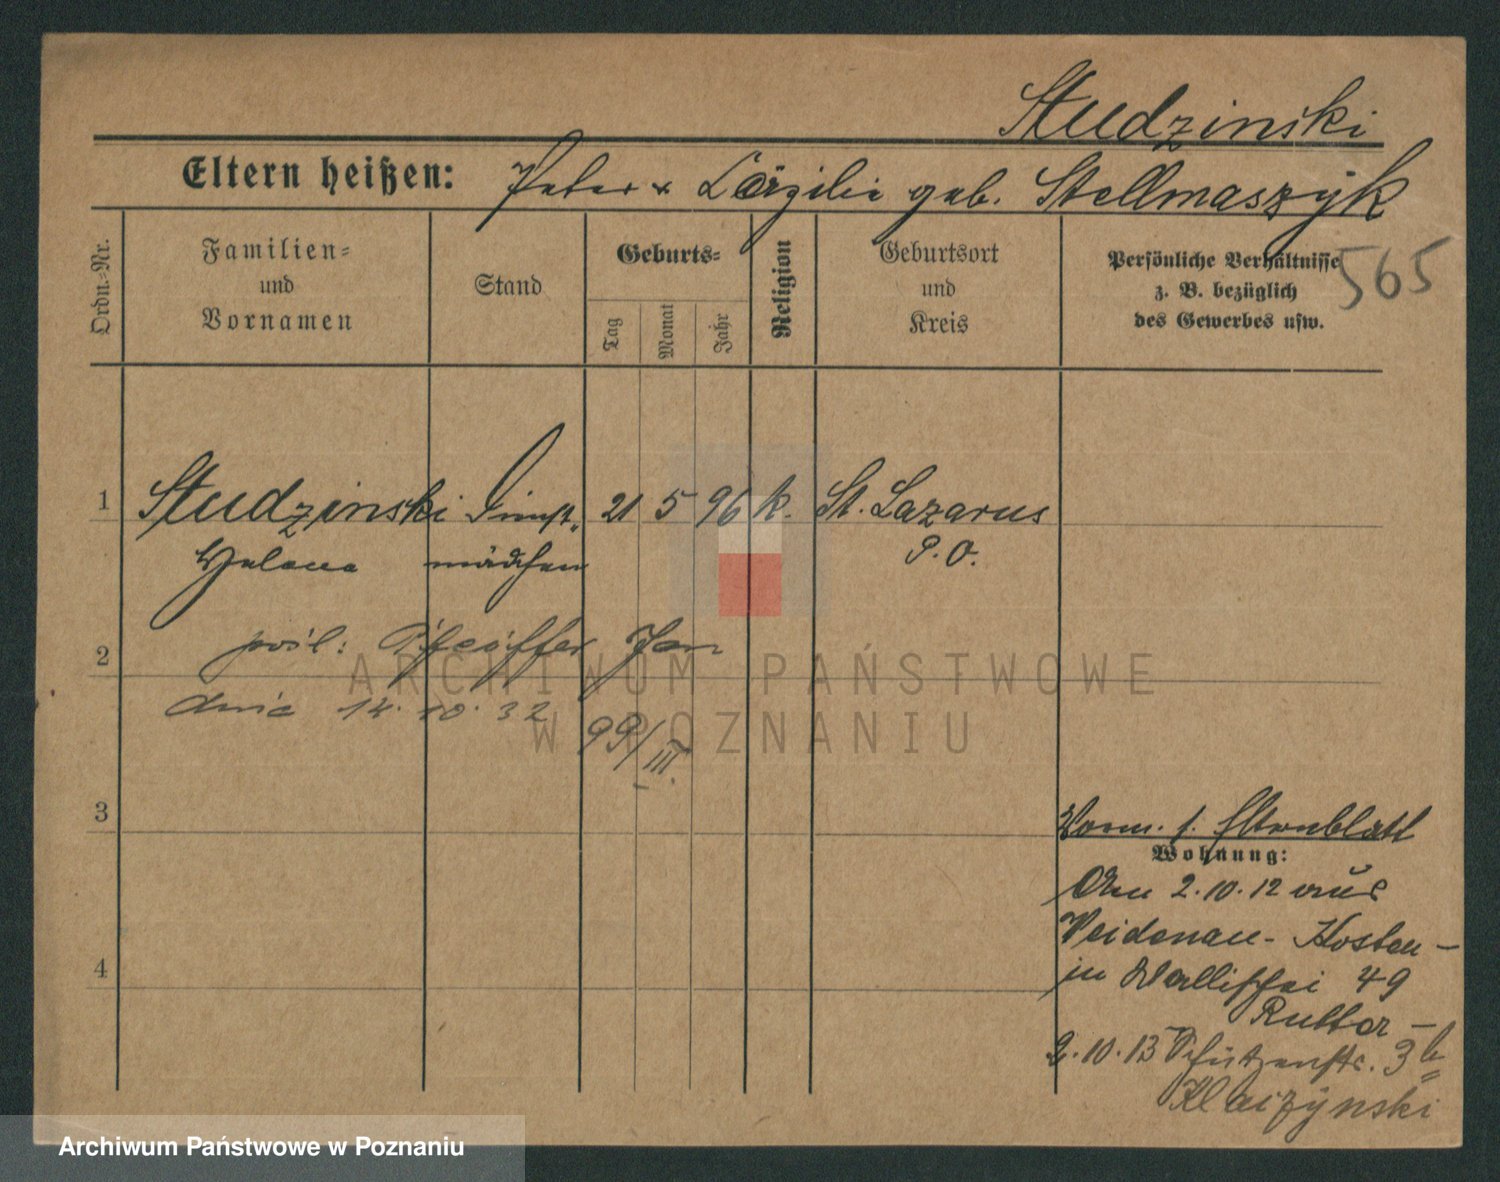 Studzinski
Eltern heißen: Peter & Cäzilie geb. Stellmaszyk
Ordn.-Nr.
Familien-
und
Vornamen
Stand
Geburts-
Tag
Monat
Jahr
Religion
Geburtsort
und
Kreis
Persönliche Verhältnisse
z. B. bezüglich
des Gewerbes usw.
565
1 Studzinski Dienst- 21 5 96 k. St. Lazarus
Helena mädchen P. O.
2 pośl: Pfeiffer Jan
dnia 14.10.32
99/III.
3
Vorm. s. Elternblatt
Wohnung:
Am 2.10.12 aus
Weidenau - Kosten -
in Wallischei 49
4
2.10.13 Schützenstr. 3 b
ARCHIWUM PAŃSTWOWE
W POZNANIU
Archiwum Państwowe w Poznaniu